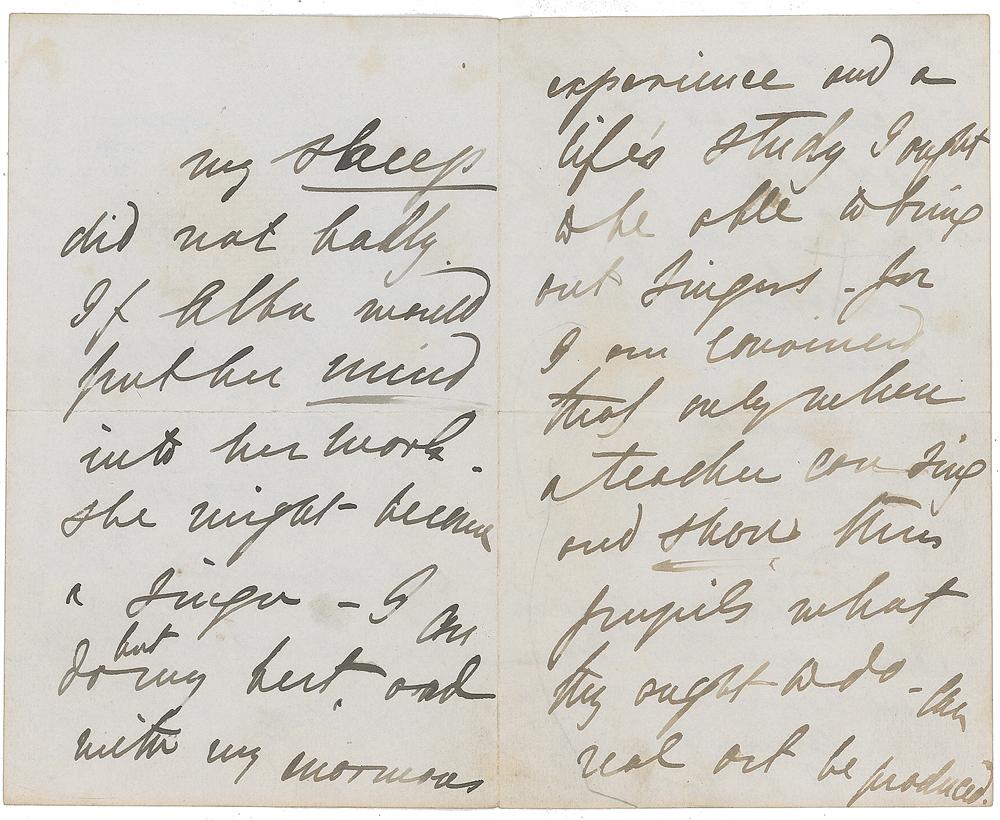 my sheep
did not badly.
If Alba would
put her mind
into her work -
she might become
a singer - I can
but
do my best, and
with my enormous
experience and a
life's study I ought
to be able to bring
out singers - for
I am convinced
that only when
a teacher can sing
and show their
pupils what
they ought to do - can
real art be produced.